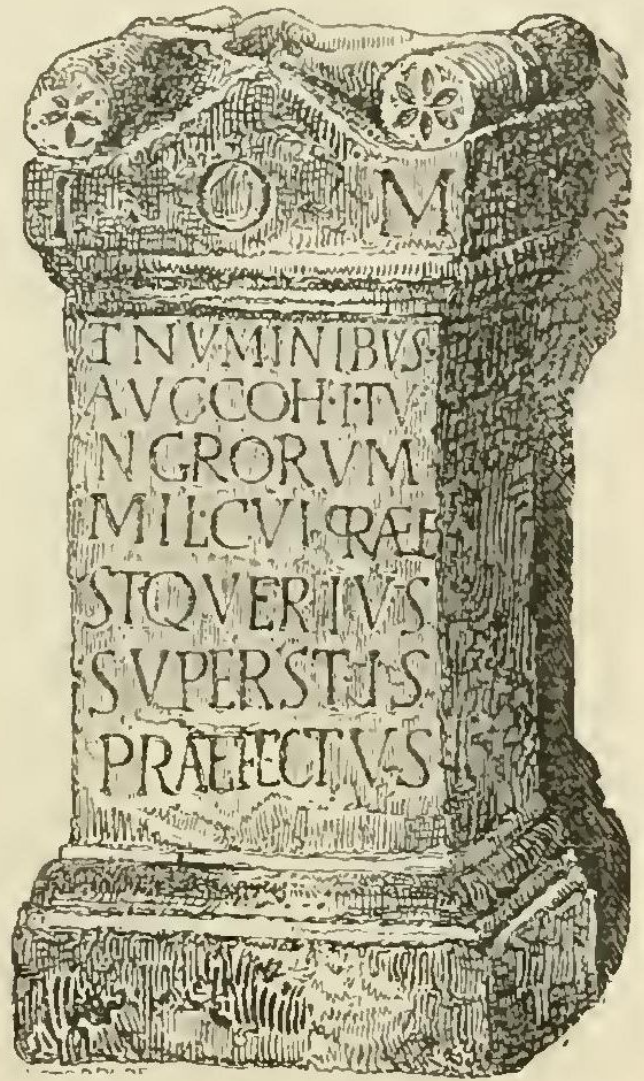 I O M
ET NVMINIBVS
AVG COH·I·TV
NGRORVM
MIL·CVI·PRAEE
ST Q VERIVS
SVPERSTIS
PRAEFECTVS